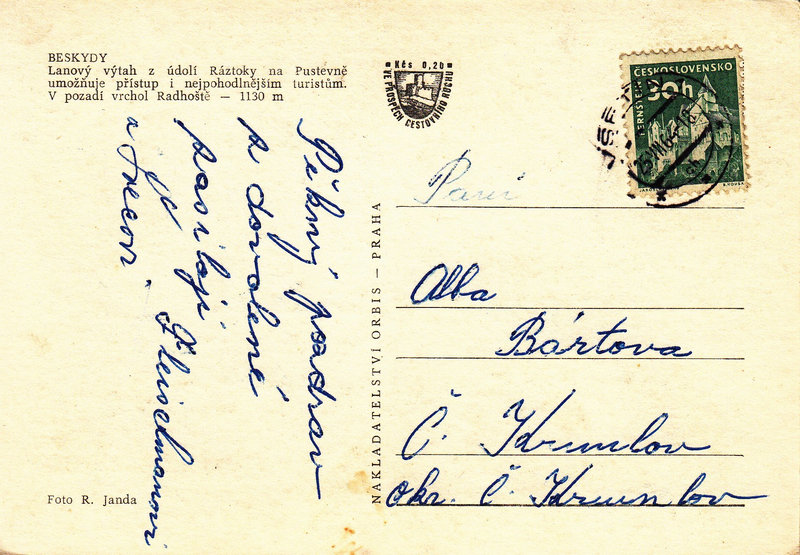 BESKYDY
Lanový výtah z údolí Ráztoky na Pustevně
umožňuje přístup i nejpohodlnějším turistům.
V pozadí vrchol Radhoště — 1130 m
Kčs 0,20
VE PROSPĚCH CESTOVNÍHO RUCHU
ČESKOSLOVENSKO
30h
PERNŠTEJN
Pěkný pozdrav
z dovolené
zasílají
Fleischmanovi
NAKLADATELSTVÍ ORBIS — PRAHA
Paní
Alba
Bártova
Č. Krumlov
okr. Č. Krumlov
Foto R. Janda